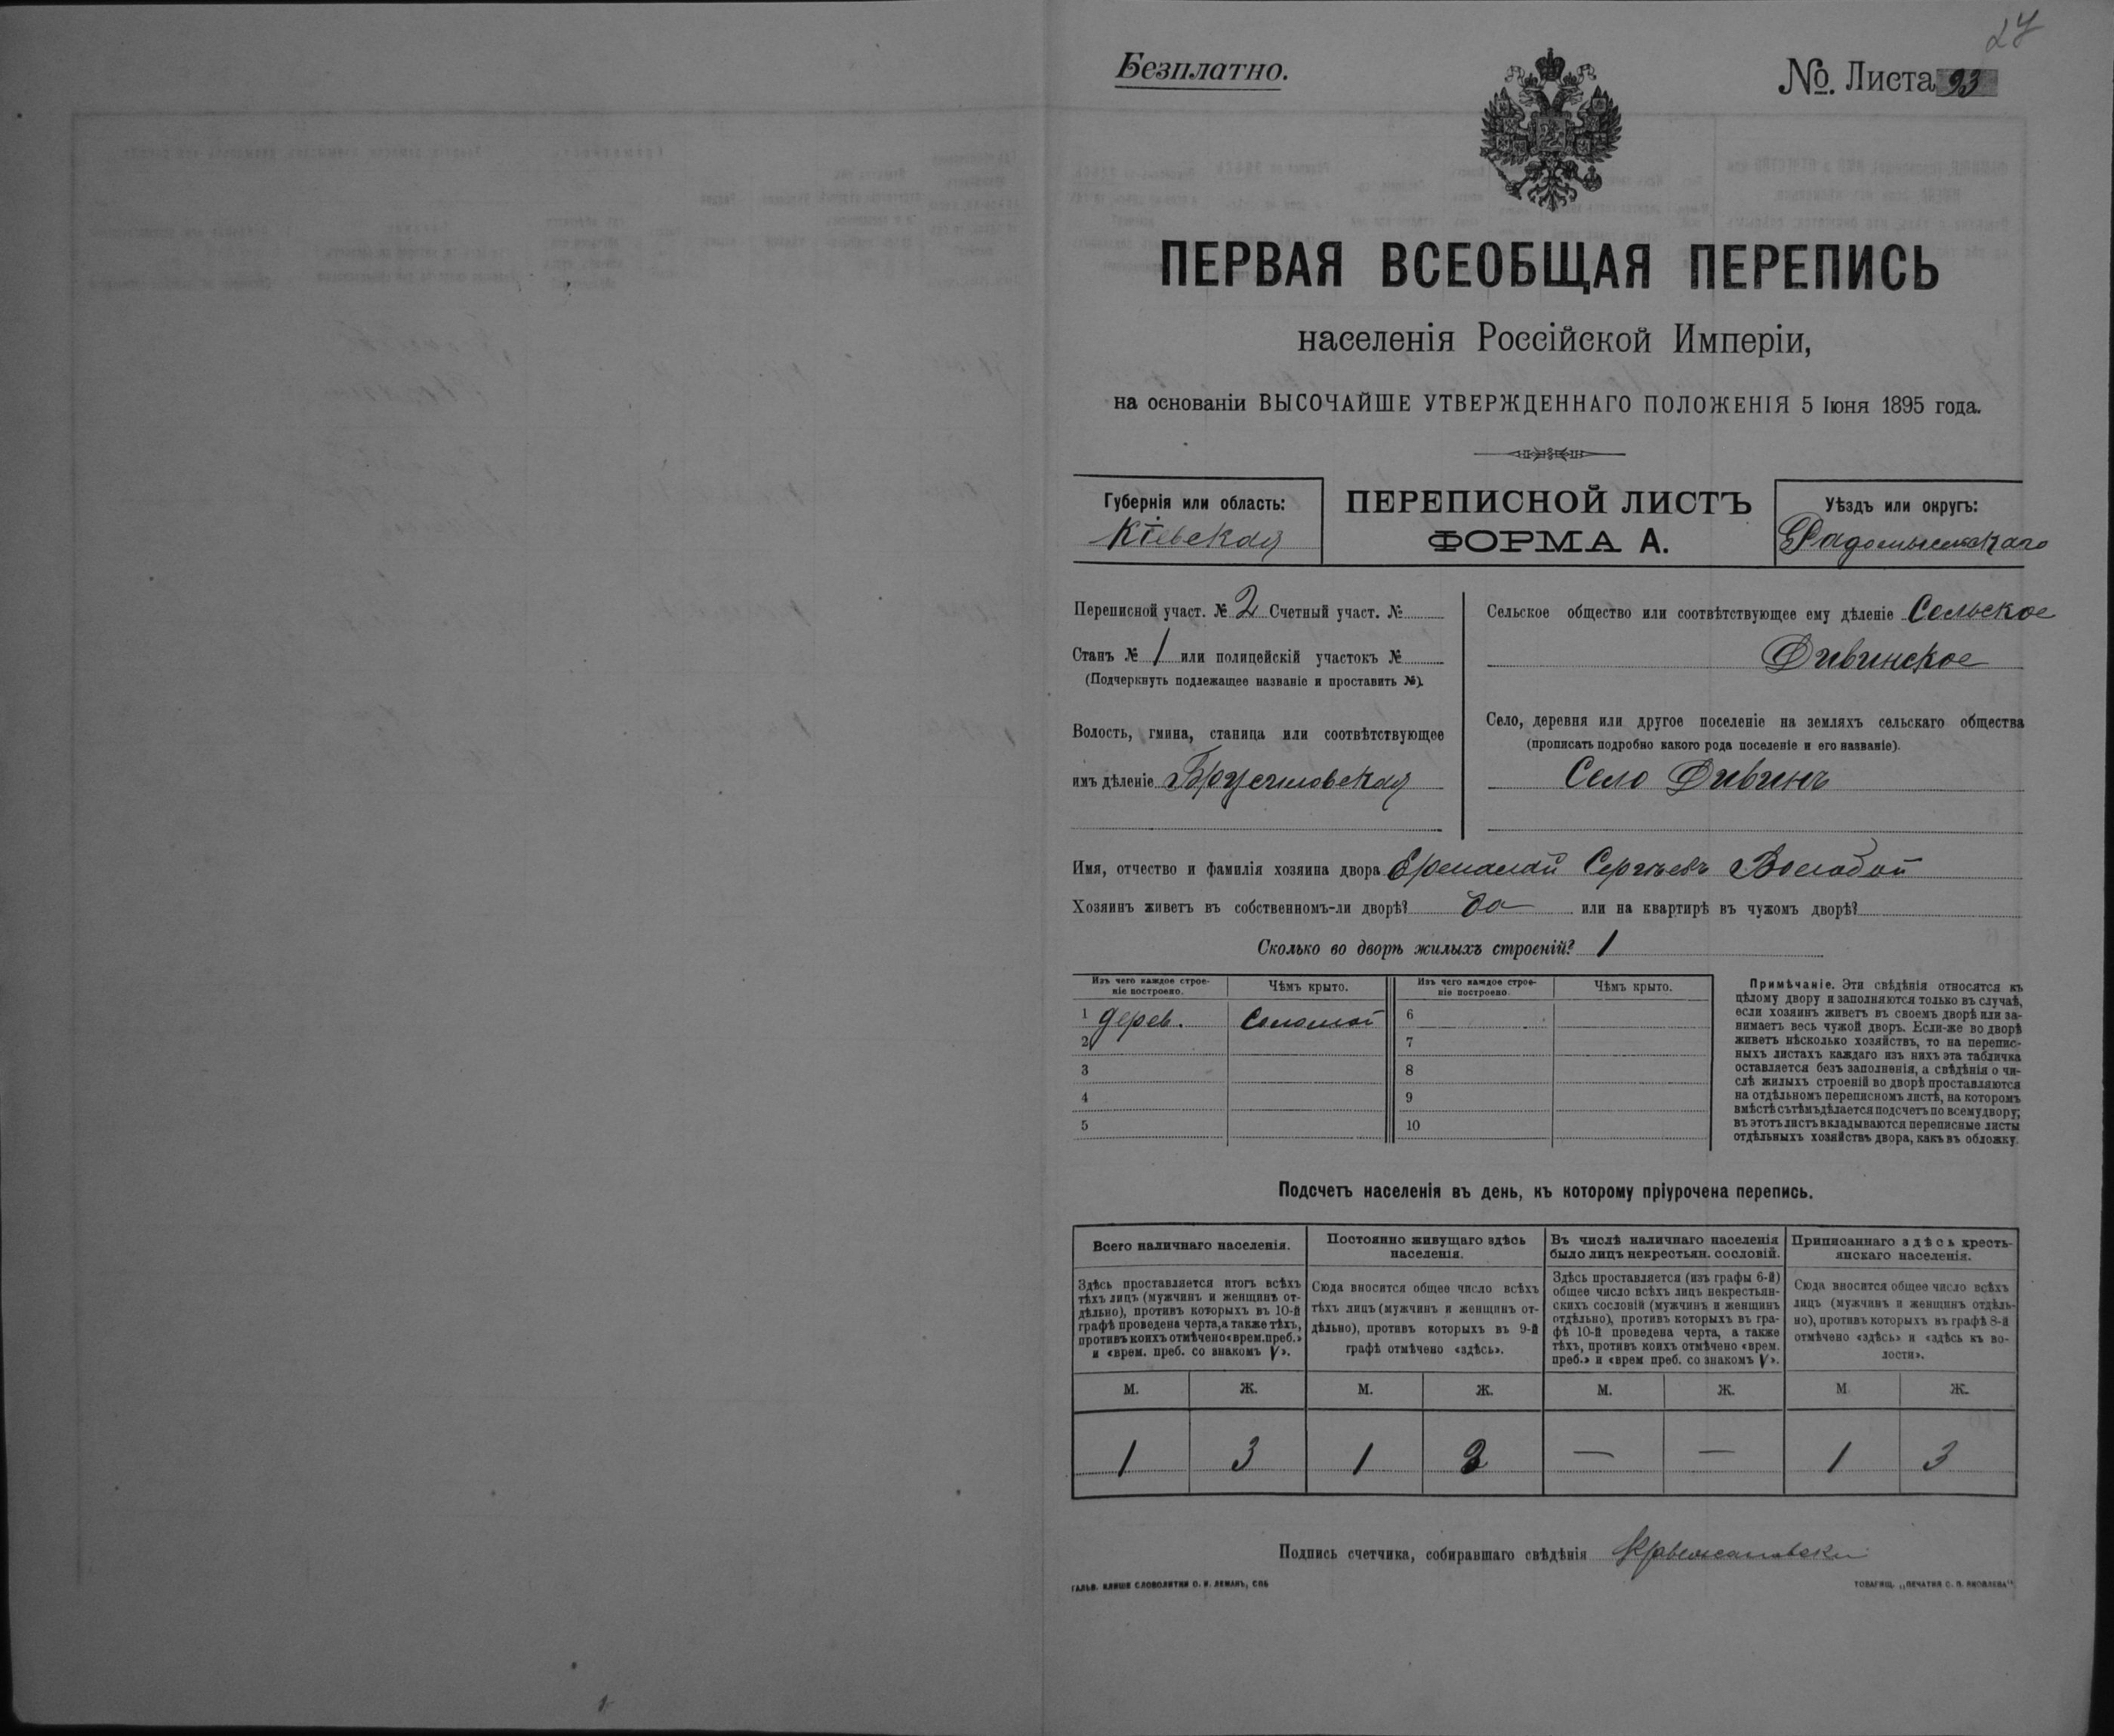 27
Безплатно.
№. Листа 93
ПЕРВАЯ ВСЕОБЩАЯ ПЕРЕПИСЬ
населенія Россійской Имперіи,
на основаніи ВЫСОЧАЙШЕ УТВЕРЖДЕННАГО ПОЛОЖЕНІЯ 5 Іюня 1895 года.
Губернія или область:
Кіевская
ПЕРЕПИСНОЙ ЛИСТЪ
ФОРМА А.
Уѣздъ или округъ:
Радомысльскаго
Переписной участ. № 2 Счетный участ. №
Станъ № 1 или полицейскій участокъ №
(Подчеркнуть подлежащее названіе и проставить №).
Волость, гмина, станица или соотвѣтствующее
имъ дѣленіе Брусиловская
Сельское общество или соотвѣтствующее ему дѣленіе Сельское
Дивинское
Село, деревня или другое поселеніе на земляхъ сельскаго общества
(прописать подробно какого рода поселеніе и его названіе).
Село Дивинъ
Имя, отчество и фамилія хозяина двора Ермолай Сергѣевъ
Хозяинъ живетъ въ собственномъ-ли дворѣ? да или на квартирѣ въ чужомъ дворѣ?
Сколько во дворѣ жилыхъ строеній? 1
Изъ чего каждое строе-
ніе построено.
Чѣмъ крыто.
Изъ чего каждое строе-
ніе построено.
Чѣмъ крыто.
1 дерев. Соломой 6
2 7
3 8
4 9
5 10
Примѣчаніе. Эти свѣдѣнія относятся къ
цѣлому двору и заполняются только въ случаѣ,
если хозяинъ живетъ въ своемъ дворѣ или за-
нимаетъ весь чужой дворъ. Если-же во дворѣ
живетъ нѣсколько хозяйствъ, то на перепис-
ныхъ листахъ каждаго изъ нихъ эта табличка
оставляется безъ заполненія, а свѣдѣнія о чи-
слѣ жилыхъ строеній во дворѣ проставляются
на отдѣльномъ переписномъ листѣ, на которомъ
вмѣстѣ съ тѣмъ дѣлается подсчетъ по всему двору;
въ этотъ листъ вкладываются переписные листы
отдѣльныхъ хозяйствъ двора, какъ въ обложку.
Подсчетъ населенія въ день, къ которому пріурочена перепись.
Всего наличнаго населенія.
Здѣсь проставляется итогъ всѣхъ
тѣхъ лицъ (мужчинъ и женщинъ от-
дѣльно), противъ которыхъ въ 10-й
графѣ проведена черта, а также тѣхъ,
противъ коихъ отмѣчено «врем. преб.»
и «врем. преб. со знакомъ V».
Постоянно живущаго здѣсь
населенія.
Сюда вносится общее число всѣхъ
тѣхъ лицъ (мужчинъ и женщинъ от-
дѣльно), противъ которыхъ въ 9-й
графѣ отмѣчено «здѣсь».
Въ числѣ наличнаго населенія
было лицъ некрестьян. сословій.
Здѣсь проставляется (изъ графы 6-й)
общее число всѣхъ лицъ некрестьян-
скихъ сословій (мужчинъ и женщинъ
отдѣльно), противъ которыхъ въ гра-
фѣ 10-й проведена черта, а также
тѣхъ, противъ коихъ отмѣчено «врем.
преб.» и «врем преб. со знакомъ V».
Приписаннаго здѣсь кресть-
янскаго населенія.
Сюда вносится общее число всѣхъ
лицъ (мужчинъ и женщинъ отдѣль-
но), противъ которыхъ въ графѣ 8-й
отмѣчено «здѣсь» и «здѣсь къ во-
лости».
М. Ж. М. Ж. М. Ж. М. Ж.
1 3 1 3 — — 1 3
Подпись счетчика, собиравшаго свѣдѣнія
ГАЛЬВ. КЛИШЕ СЛОВОЛИТНИ О. И. ЛЕМАНЪ, СПБ
ТОВАРИЩ. „ПЕЧАТНЯ С. П. ЯКОВЛЕВА"